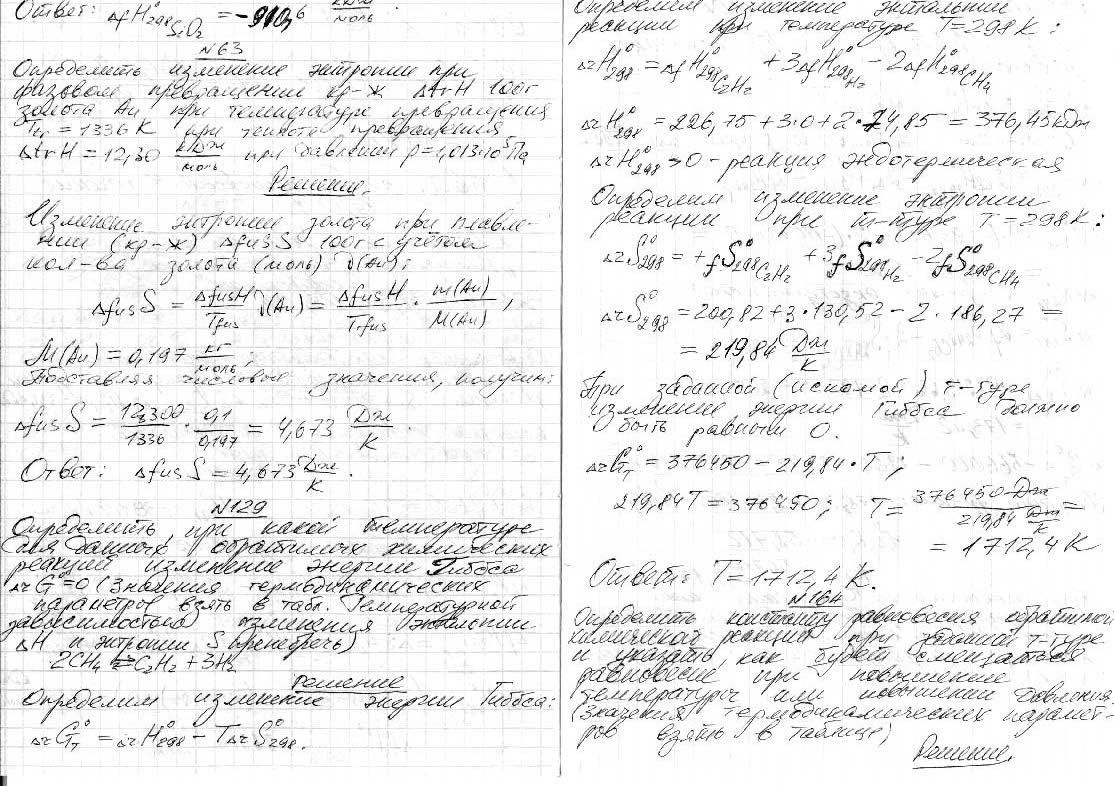 Ответ: ΔfH°298 SiO2 = -910,6 кДж/моль
N63
Определить изменение энтропии при
фазовом превращении кр-ж ΔtrH 100г
золота Au при температуре превращения
Ttr = 1336 К при теплоте превращения
ΔtrH = 12,30 кДж/моль при давлении p=1,013·10⁵Па
Решение.
Изменение энтропии золота при плавле-
нии (кр-ж) ΔfusS 100г с учётом
кол-ва золота (моль) ν(Au):
ΔfusS = ΔfusH/Tfus ν(Au) = ΔfusH/Tfus · m(Au)/M(Au),
M(Au) = 0,197 кг/моль;
Подставляя числовые значения, получим:
ΔfusS = 12300/1336 · 0,1/0,197 = 4,673 Дж/К.
Ответ: ΔfusS = 4,673 Дж/К.
N129
Определить, при какой температуре
для данных обратимых химических
реакций изменение энергии Гиббса
ΔrG°=0 (Значения термодинамических
параметров взять в табл. Температурной
зависимостью изменения энтальпии
ΔH и энтропии S пренебречь)
2CH4 ⇄ C2H2 + 3H2
Решение
Определим изменение энергии Гиббса:
ΔrG°T = ΔrH°298 - TΔrS°298.
Определим изменение энтальпии
реакции при температуре T=298К:
ΔrH°298 = ΔfH°298 C2H2 + 3ΔfH°298 H2 - 2ΔfH°298 CH4
ΔrH°298 = 226,75 + 3·0 + 2·74,85 = 376,45кДж
ΔrH°298 >0 - реакция эндотермическая
Определим изменение энтропии
реакции при т-туре T=298К:
ΔrS°298 = +fS°298 C2H2 + 3fS°298 H2 - 2fS°298 CH4
ΔrS°298 = 200,82+3·130,52 - 2·186,27 =
= 219,84 Дж/К
При заданной (искомой) т-туре
изменение энергии Гиббса должно
быть равным 0.
ΔrG°T = 376450 - 219,84·T;
219,84T = 376450; T = 376450 Дж/219,84 Дж/К =
= 1712,4 К
Ответ: T=1712,4 К.
N164
Определить константу равновесия обратимой
химической реакции при заданной т-туре
и указать, как будет смещаться
равновесие при повышение
температуры или повышении давления
(Значения термодинамических парамет-
ров взять в таблице)
Решение.